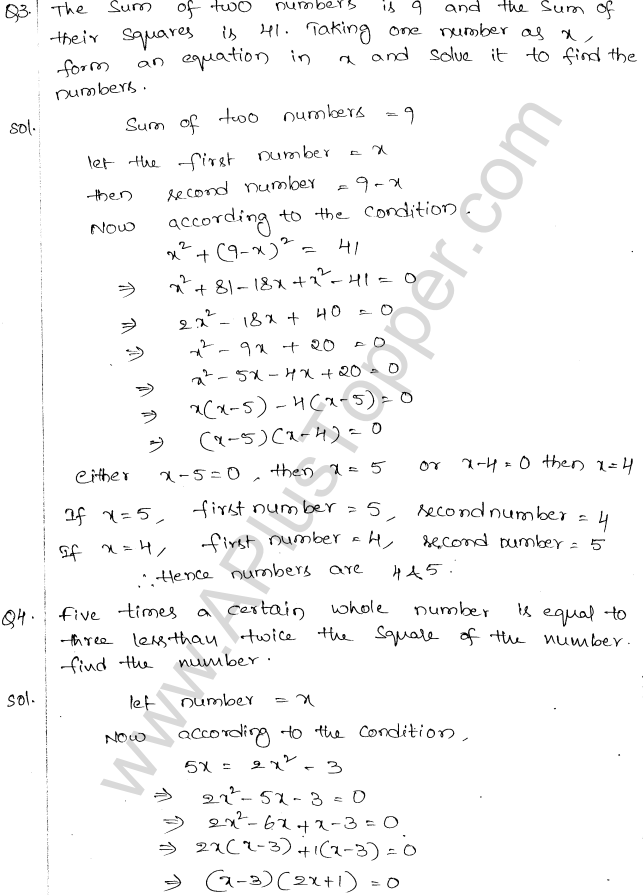 Q3. The Sum of two numbers is 9 and the sum of
their squares is 41. Taking one number as x,
form an equation in x and solve it to find the
numbers.
sol. Sum of two numbers = 9
let the first number = x
then second number = 9-x
Now according to the condition.
x² + (9-x)² = 41
⇒ x² + 81 - 18x + x² - 41 = 0
⇒ 2x² - 18x + 40 = 0
⇒ x² - 9x + 20 = 0
⇒ x² - 5x - 4x + 20 = 0
⇒ x(x-5) - 4(x-5) = 0
⇒ (x-5)(x-4) = 0
either x-5=0, then x = 5 or x-4=0 then x=4
If x=5, first number = 5, second number = 4
If x=4, first number = 4, second number = 5
∴ Hence numbers are 4 & 5.
Q4. five times a certain whole number is equal to
three less than twice the square of the number.
find the number.
sol. let number = x
Now according to the condition,
5x = 2x² - 3
⇒ 2x² - 5x - 3 = 0
⇒ 2x² - 6x + x - 3 = 0
⇒ 2x(x-3) + 1(x-3) = 0
⇒ (x-3)(2x+1) = 0
www.APlusTopper.com